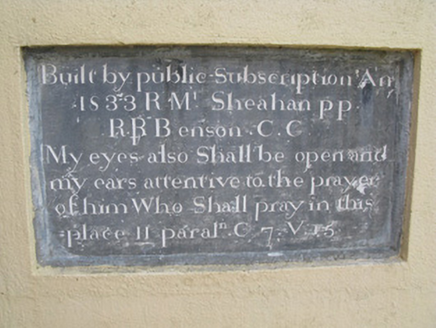 Built by public Subscription An
1833 R Mr Sheahan pp
R.B Benson . C . C
My eyes also Shall be open and
my ears attentive to the prayer
of him Who Shall pray in this
place II paraln. C 7. V 15